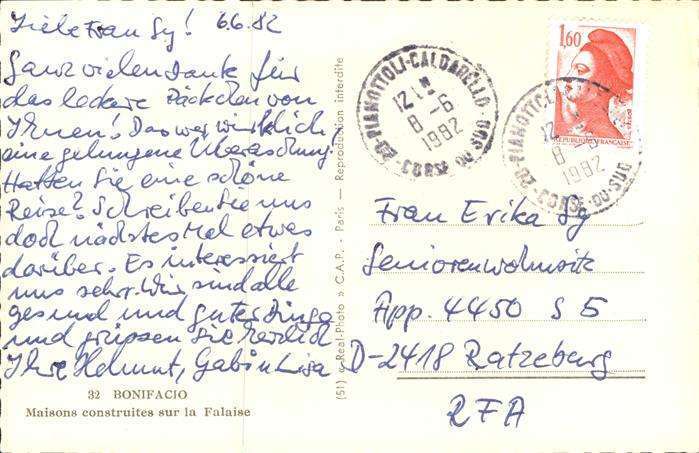 Liebe Frau Sy! 6.6.82
Ganz vielen Dank für
das leckere Päckchen von
Ihnen! Das war wirklich
eine gelungene Überraschung!
Hatten Sie eine schöne
Reise? Schreiben Sie uns
doch nächstes Mal etwas
darüber. Es interessiert
uns sehr. Wir sind alle
gesund und guter Dinge
und grüssen Sie herzlich
Ihre Helmut, Gabi u Lisa
32 BONIFACIO
Maisons construites sur la Falaise
(51) « Real-Photo » C.A.P. - Paris — Reproduction interdite
20 PIANOTTOLI-CALDARELLO
12 H
8 -6
1982
CORSE-DU-SUD
1,60
REPUBLIQUE FRANÇAISE
20 PIANOTTOLI
12
8
1982
CORSE-DU-SUD
Frau Erika Sy
Seniorenwohnsitz
App. 4450 S 5
D-2418 Ratzeburg
RFA